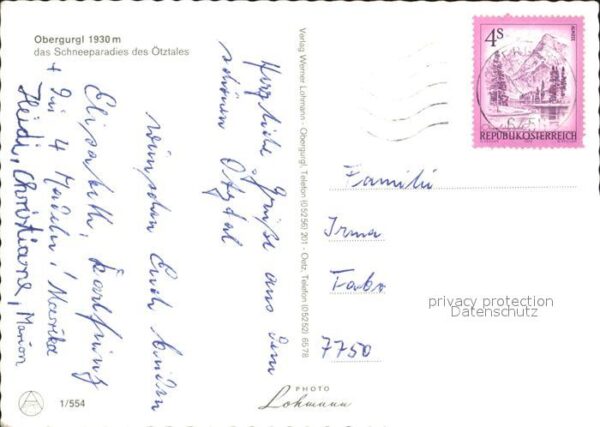 Obergurgl 1930 m
das Schneeparadies des Ötztales
Herzliche Grüße aus dem
schönen Ötztal
wünschen Euch beiden
Elisabeth, Karlheinz
+ die 4 Mädels! Marika
Heidi, Christiane, Marion
Verlag Werner Lohmann - Obergurgl, Telefon (05256) 201 - Oetz, Telefon (05252) 6578
4S
REPUBLIK ÖSTERREICH
Familie
Irma
Faber
7750
privacy protection
Datenschutz
1/554
PHOTO
Lohmann